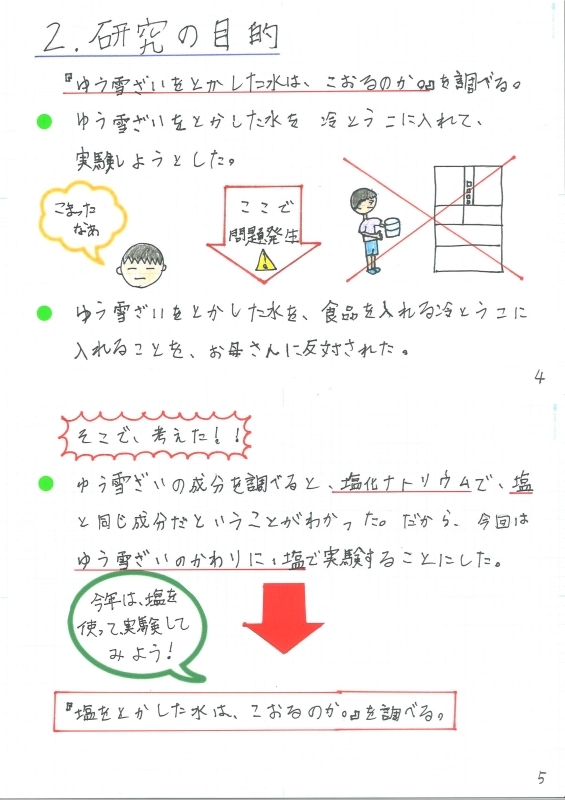 2.研究の目的
『ゆう雪ざいをとかした水は、こおるのか。』を調べる。
ゆう雪ざいをとかした水を 冷とうこに入れて、
実験しようとした。
こまった
なぁ
ここで
問題発生
ゆう雪ざいをとかした水を、食品を入れる冷とうこに
入れることを、お母さんに反対された。
4
そこで、考えた!!
ゆう雪ざいの成分を調べると、塩化ナトリウムで、塩
と同じ成分だということがわかった。だから、今回は
ゆう雪ざいのかわりに、塩で実験することにした。
今年は、塩を
使って、実験して
みよう!
『塩をとかした水は、こおるのか。』を調べる。
5